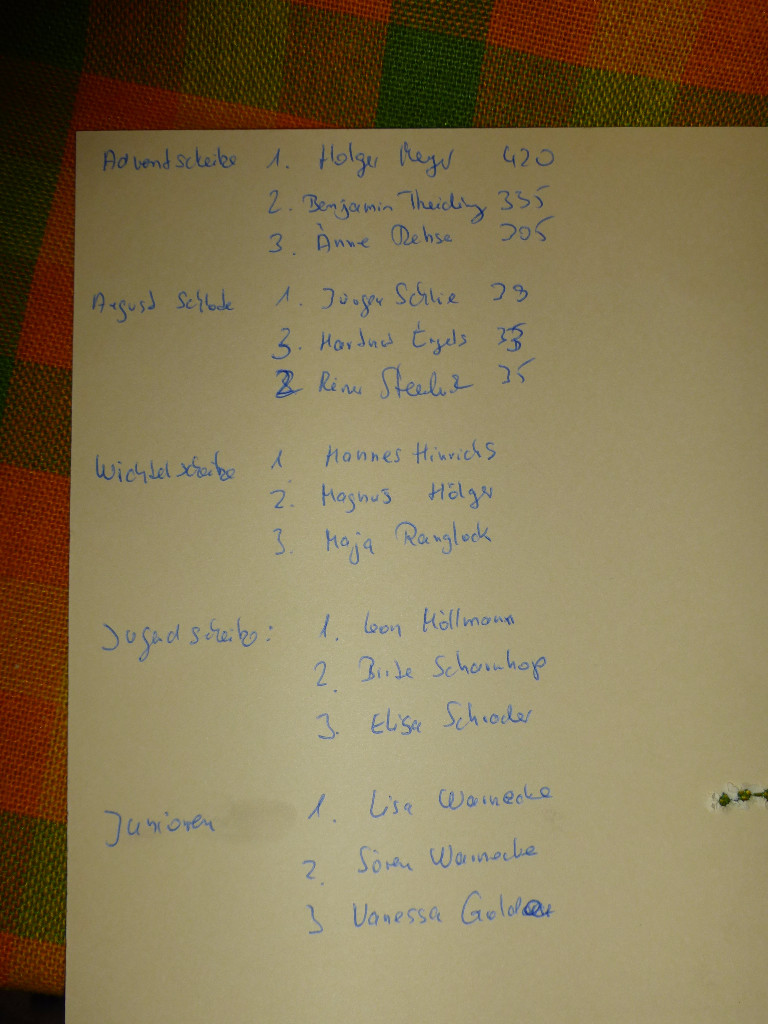 Adventscheibe 1. Holger Meyer 420
2. Benjamin Theiding 335
3. Änne Rehse 305
August 1. Jürgen Schlie 39
3. Hartmut Engels 33
2 Reiner 35
Wichtelscheibe 1. Hannes Hinrichs
2. Magnus Hölger
3. Maja Ranglack
Jugendscheibe: 1. Leon Höllmann
2. Birte Scharnhop
3. Elisa Schröder
Junioren 1. Lisa Warnecke
2. Sören Warnecke
3 Vanessa